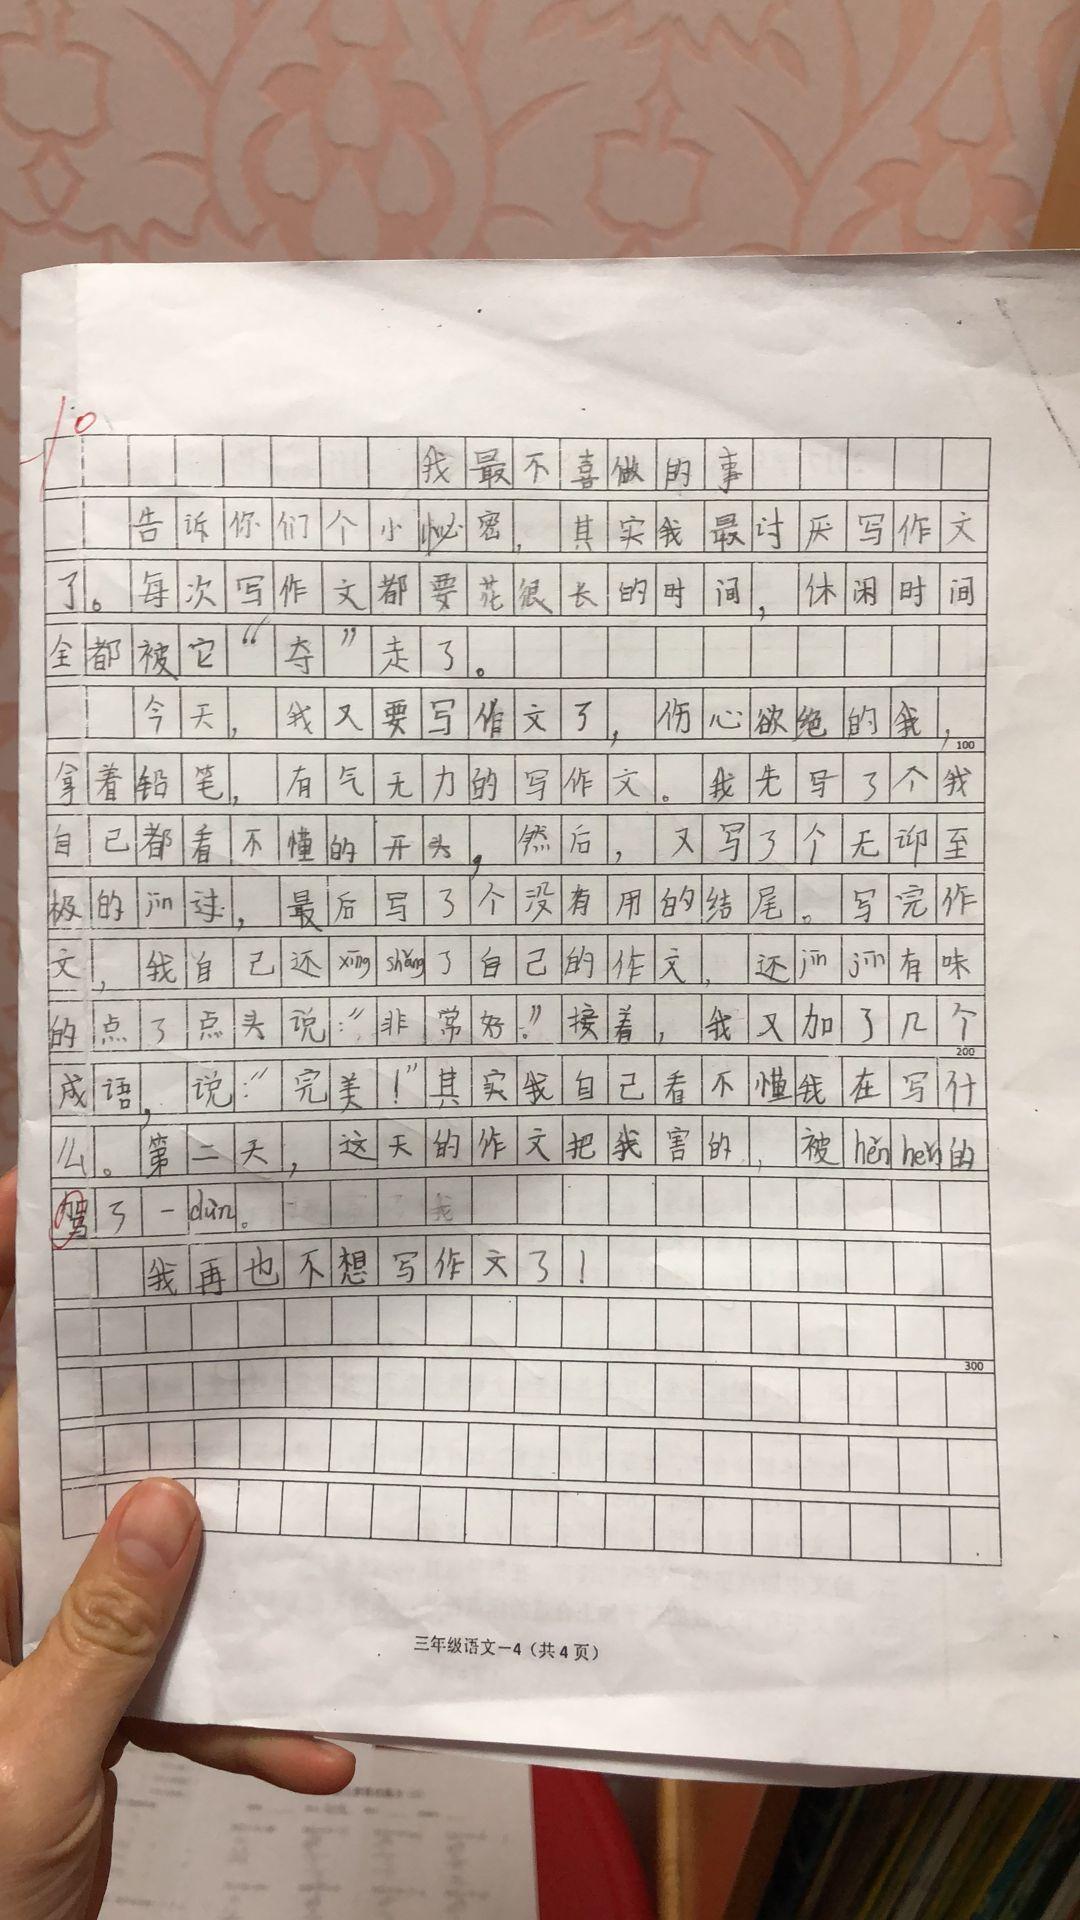 10
我最不喜做的事
告诉你们个小密，其实我最讨厌写作文
了。每次写作文都要花很长的时间，休闲时间
全都被它“夺”走了。
今天，我又要写作文了，伤心欲绝的我，
100
拿着铅笔，有气无力的写作文。我先写了个我
自己都看不懂的开头，然后，又写了个无卬至
极的jīn过，最后写了个没有用的结尾。写完作
文，我自己还xīng shǎng了自己的作文，还jīn jīn有味
的点了点头说：“非常好。”接着，我又加了几个
200
成语，说：“完美！”其实我自己看不懂我在写什
么。第二天，这天的作文把我害的，被hěn hěn的
骂了一dùn。
我再也不想写作文了！
300
三年级语文—4（共4页）